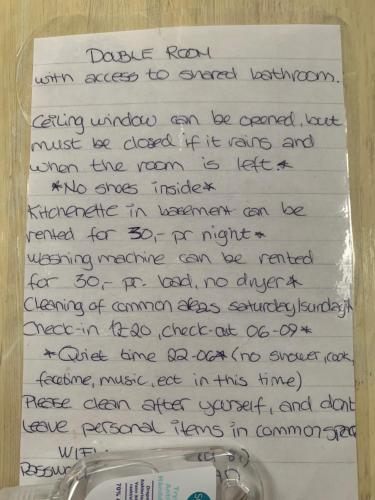 DOUBLE ROOM
with access to shared bathroom.
Ceiling window can be opened, but
must be closed if it rains and
when the room is left.*
*No shoes inside*
Kitchenette in basement can be
rented for 30,- pr night*
Washing machine can be rented
for 30,- pr. load, no dryer*
Cleaning of common areas saturday/sunday*
Check-in 17-20, check-out 06-09*
*Quiet time 22-06* (no shower, cook,
facetime, music, ect in this time)
Please clean after yourself, and dont
leave personal items in common space
WIFI
70%